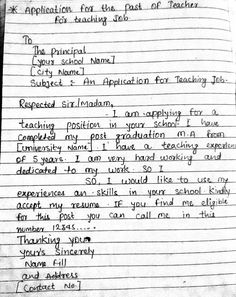 * Application for the Post of Teacher
For teaching Job
To
The Principal
[Your School Name]
[City Name]
Subject:- An Application for Teaching Job.
Respected Sir/Madam,
I am applying for a
teaching position in your school. I have
completed my post graduation M.A from
[University Name]. I have a teaching experience
of 5 years. I am very hard working and
dedicated to my work. So I
SO, I would like to use my
experiences an skills in your school kindly
accept my resume. IF you find me eligible
for this post you can call me in this
number 12345.....
Thanking you
your's Sincerely
Name Fill
and Address
[Contact No.]